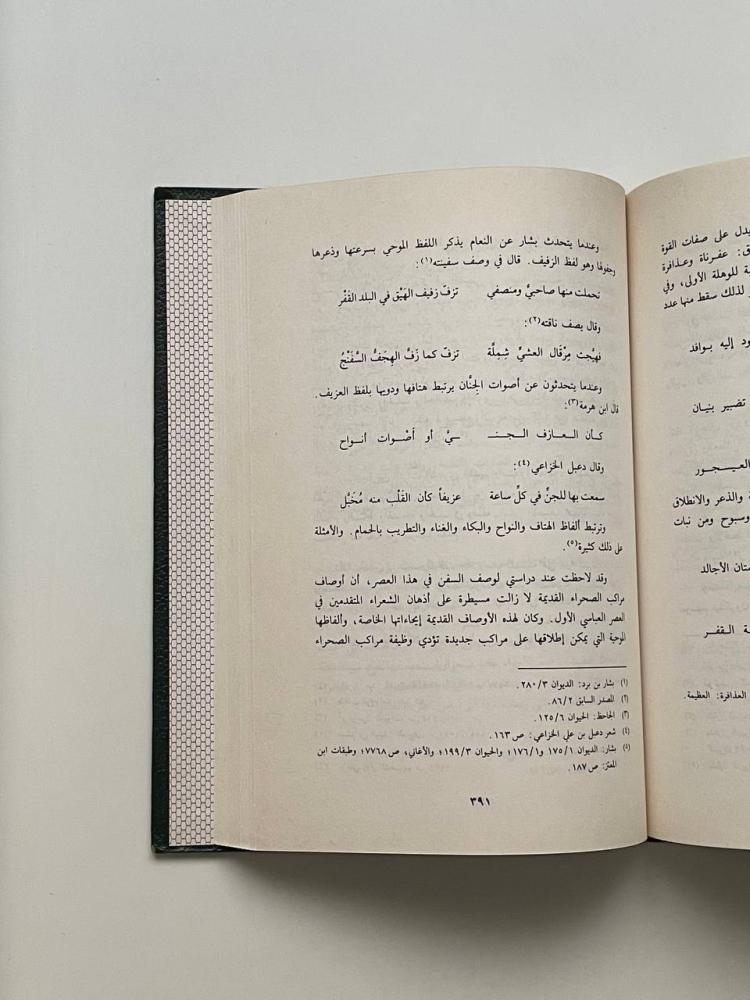 يدل على صفات القوة
ق: عفرناة وعذافرة
ة للوهلة الأولى، وفي
لذلك سقط منها عدد
ود إليه بوافد
تضبير بنيان
العيجور
ة والذعر والانطلاق
وسبوح ومن نبات
ستان الأجالد
ة القفر
العذافرة: العظيمة.
وعندما يتحدث بشار عن النعام يذكر اللفظ الموحي بسرعتها وذعرها
وجفولها وهو لفظ الزفيف. قال في وصف سفينته(١):
تحملت منها صاحبيَّ ومنصفي تزفّ زفيف الهَيْق في البلد القَفْر
وقال يصف ناقته(٢):
فهيَّجت مِرْقال العشيِّ شِمِلَّة تزفّ كما زَفَّ الهِجَفُّ السَّفَنَّجُ
وعندما يتحدثون عن أصوات الجِنَّان يرتبط هتافها ودويها بلفظ العزيف.
قال ابن هرمة(٣):
كأن العازف الجنـ ـيَّ أو أصْوات أنواح
وقال دعبل الخزاعي(٤):
سمعت بها للجنِّ في كلِّ ساعة عزيفاً كأن القَلْب منه مُخَبَّل
وترتبط ألفاظ الهتاف والنواح والبكاء والغناء والتطريب بالحمام. والأمثلة
على ذلك كثيرة(٥).
وقد لاحظت عند دراستي لوصف السفن في هذا العصر، أن أوصاف
مراكب الصحراء القديمة لا زالت مسيطرة على أذهان الشعراء المتقدمين في
العصر العباسي الأول. وكان لهذه الأوصاف القديمة إيحاءاتها الخاصة، وألفاظها
الموحية التي يمكن إطلاقها على مراكب جديدة تؤدي وظيفة مراكب الصحراء
(١) بشار بن برد: الديوان ٢٨٠/٣.
(٢) المصدر السابق ٨٦/٢.
(٣) الجاحظ: الحيوان ١٢٥/٦.
(٤) شعر دعبل بن علي الخزاعي: ص ١٦٣.
(٥) بشار: الديوان ١٧٥/١ و١٧٦/١؛ والحيوان ١٩٩/٣؛ والأغاني، ص ٧٧٦٨؛ وطبقات ابن
المعتز: ص ١٨٧.
٣٩١